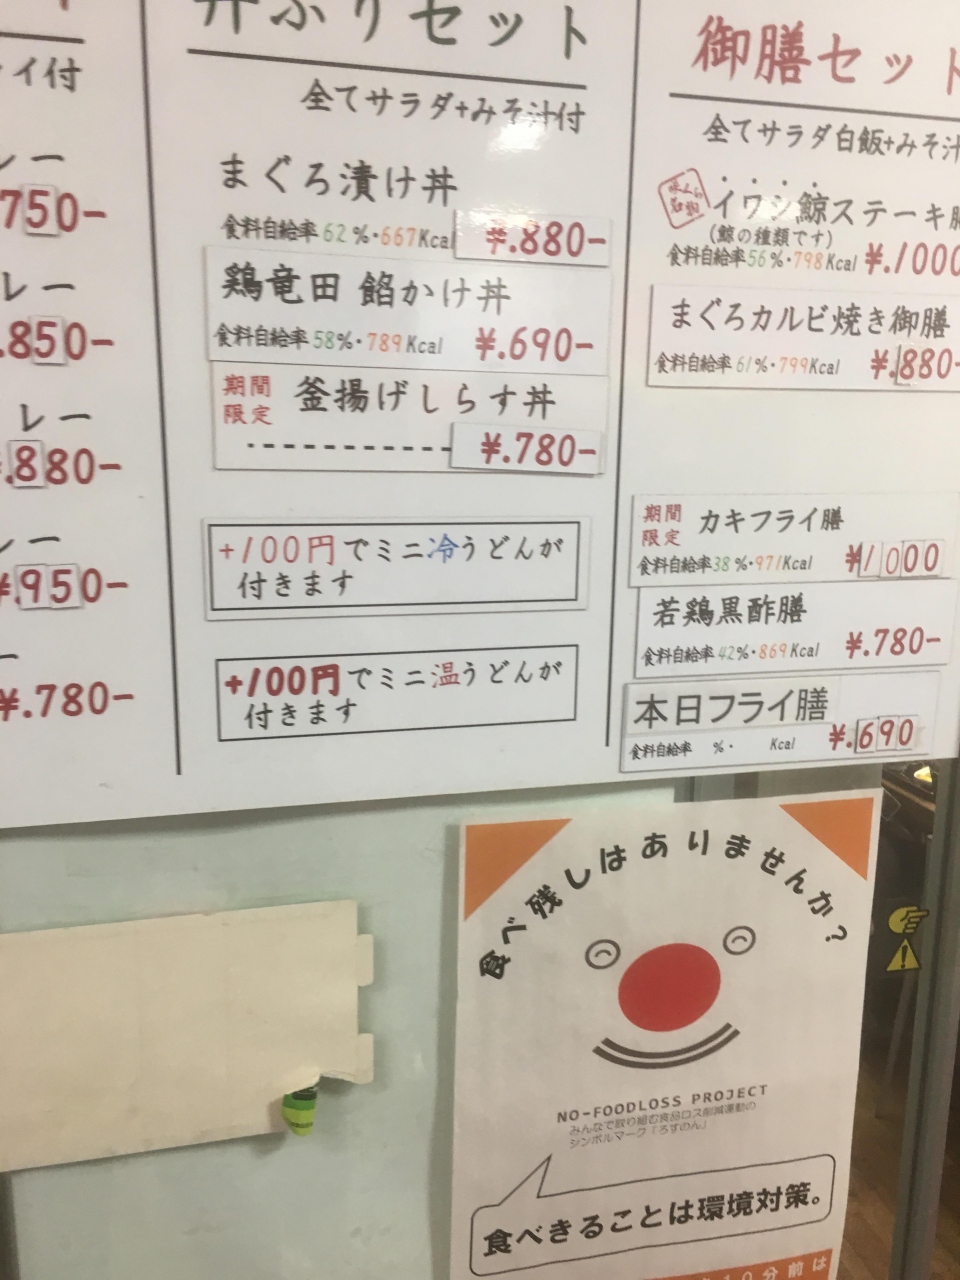 イ付
レー
750-
レー
.850-
レー
.880-
レー
¥.950-
ー
¥.780-
丼ぶりセット
全てサラダ+みそ汁付
まぐろ漬け丼
食料自給率62%・667Kcal ¥.880-
鶏竜田 餡かけ丼
食料自給率58%・789Kcal ¥.690-
期間限定 釜揚げしらす丼
¥.780-
+100円でミニ冷うどんが
付きます
+100円でミニ温うどんが
付きます
御膳セット
全てサラダ白飯+みそ汁
イワシ鯨ステーキ膳
(鯨の種類です)
食料自給率56%・798Kcal ¥.1000
まぐろカルビ焼き御膳
食料自給率61%・799Kcal ¥.880-
期間限定 カキフライ膳
食料自給率38%・971Kcal ¥1000
若鶏黒酢膳
食料自給率42%・869Kcal ¥.780-
本日フライ膳
食料自給率 %・ Kcal ¥.690
食べ残しはありませんか?
NO-FOODLOSS PROJECT
みんなで取り組む食品ロス削減運動の
シンボルマーク「ろすのん」
食べきることは環境対策。
10分前は